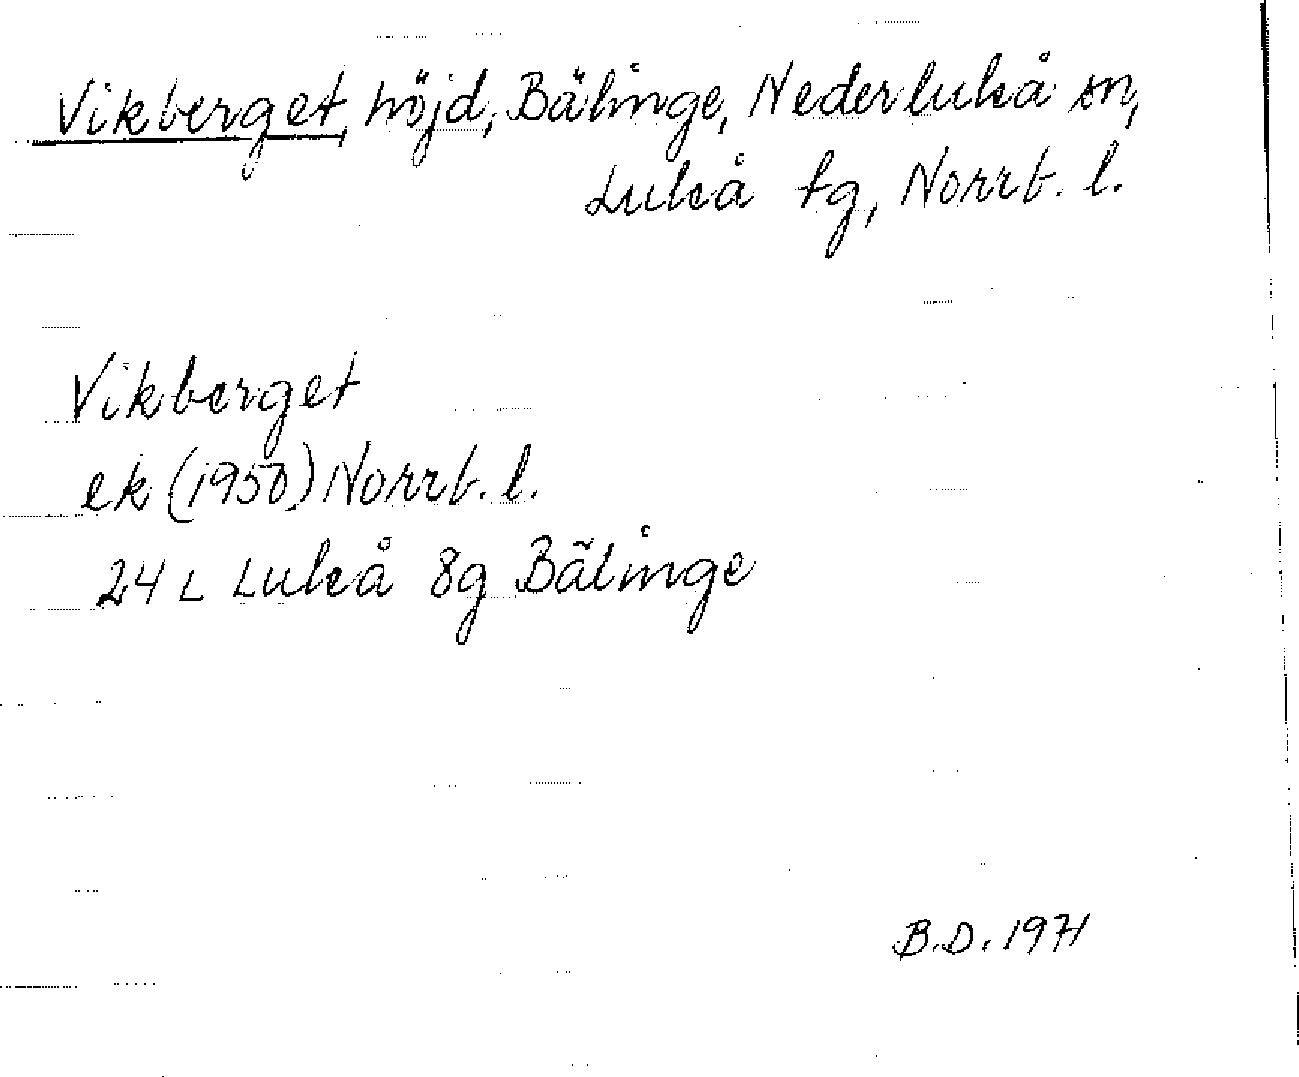 Vikberget, höjd, Bälinge, Nederluleå sn,
Luleå tg, Norrb. l.
Vikberget
ek (1950) Norrb. l.
24 L Luleå 8g Bälinge
B.D. 1971